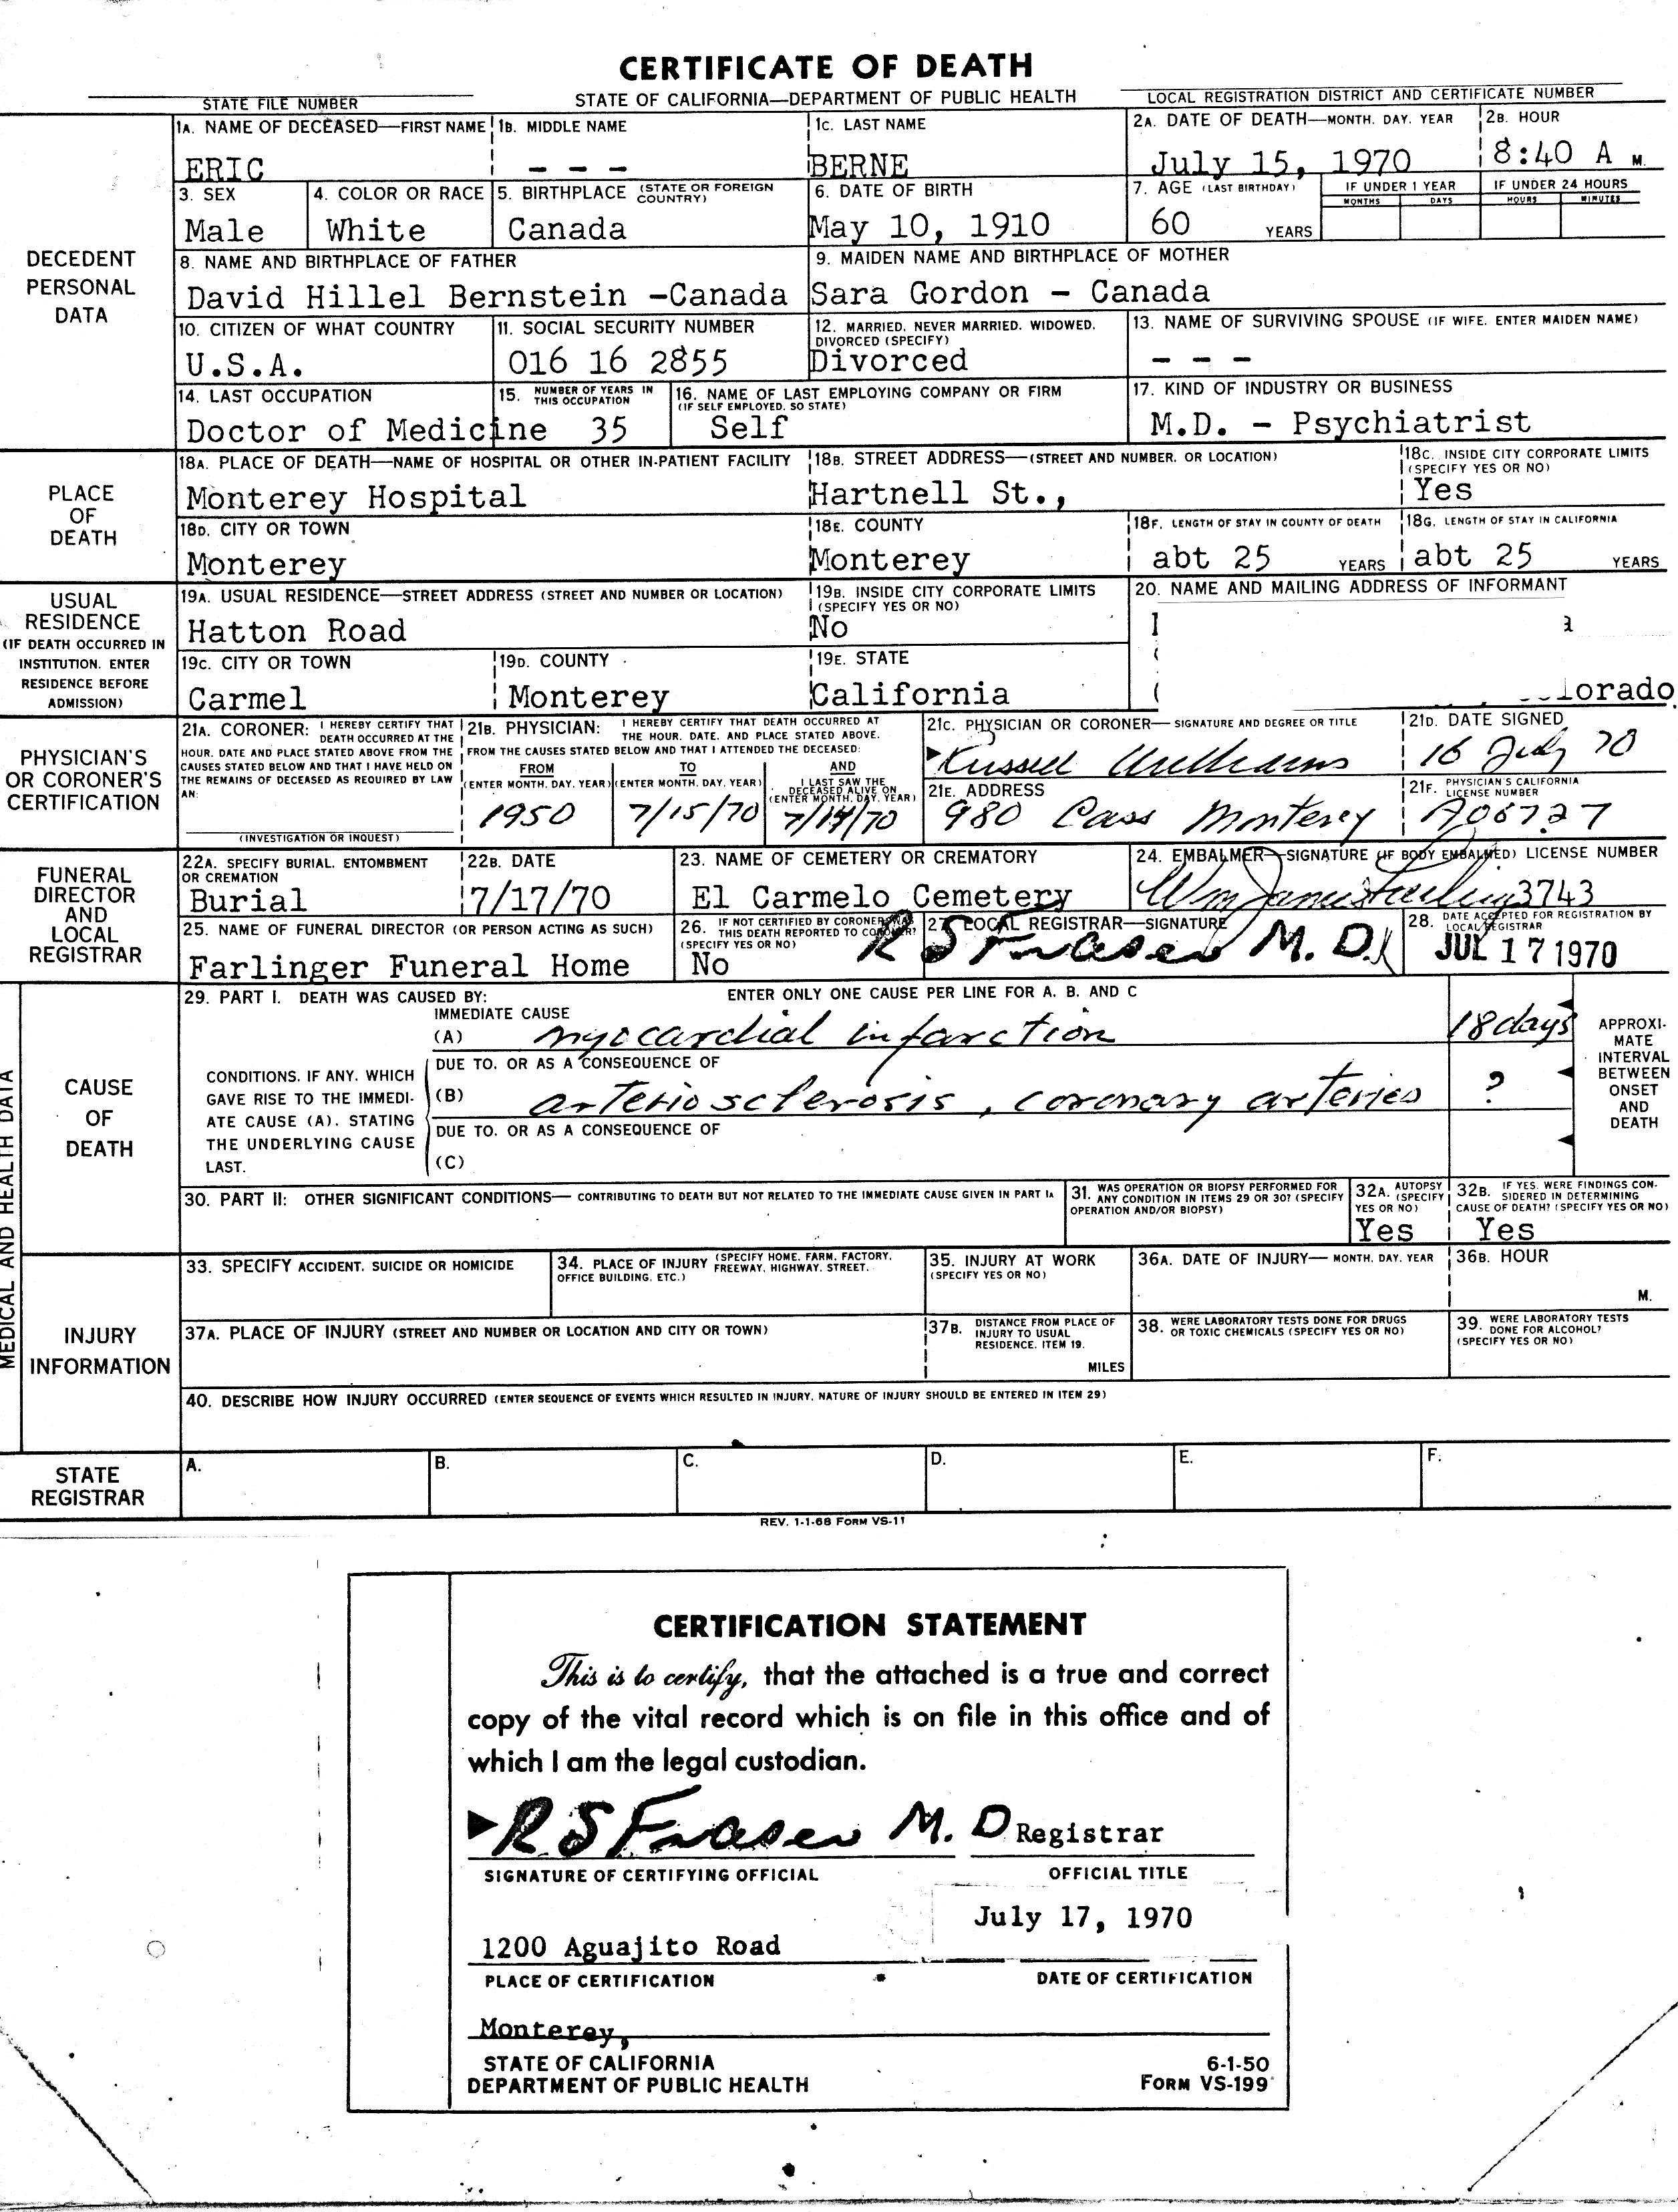 CERTIFICATE OF DEATH
STATE FILE NUMBER
STATE OF CALIFORNIA—DEPARTMENT OF PUBLIC HEALTH
LOCAL REGISTRATION DISTRICT AND CERTIFICATE NUMBER
DECEDENT PERSONAL DATA
1A. NAME OF DECEASED—FIRST NAME
ERIC
1B. MIDDLE NAME
- - -
1C. LAST NAME
BERNE
2A. DATE OF DEATH—MONTH. DAY. YEAR
July 15, 1970
2B. HOUR
8:40 A M.
3. SEX
Male
4. COLOR OR RACE
White
5. BIRTHPLACE (STATE OR FOREIGN COUNTRY)
Canada
6. DATE OF BIRTH
May 10, 1910
7. AGE (LAST BIRTHDAY)
60 YEARS
IF UNDER 1 YEAR
MONTHS DAYS
IF UNDER 24 HOURS
HOURS MINUTES
8. NAME AND BIRTHPLACE OF FATHER
David Hillel Bernstein -Canada
9. MAIDEN NAME AND BIRTHPLACE OF MOTHER
Sara Gordon - Canada
10. CITIZEN OF WHAT COUNTRY
U.S.A.
11. SOCIAL SECURITY NUMBER
016 16 2855
12. MARRIED. NEVER MARRIED. WIDOWED. DIVORCED (SPECIFY)
Divorced
13. NAME OF SURVIVING SPOUSE (IF WIFE. ENTER MAIDEN NAME)
- - -
14. LAST OCCUPATION
Doctor of Medicine
15. NUMBER OF YEARS IN THIS OCCUPATION
35
16. NAME OF LAST EMPLOYING COMPANY OR FIRM (IF SELF EMPLOYED. SO STATE)
Self
17. KIND OF INDUSTRY OR BUSINESS
M.D. - Psychiatrist
PLACE OF DEATH
18A. PLACE OF DEATH—NAME OF HOSPITAL OR OTHER IN-PATIENT FACILITY
Monterey Hospital
18B. STREET ADDRESS—(STREET AND NUMBER. OR LOCATION)
Hartnell St.,
18C. INSIDE CITY CORPORATE LIMITS (SPECIFY YES OR NO)
Yes
18D. CITY OR TOWN
Monterey
18E. COUNTY
Monterey
18F. LENGTH OF STAY IN COUNTY OF DEATH
abt 25 YEARS
18G. LENGTH OF STAY IN CALIFORNIA
abt 25 YEARS
USUAL RESIDENCE
(IF DEATH OCCURRED IN INSTITUTION. ENTER RESIDENCE BEFORE ADMISSION)
19A. USUAL RESIDENCE—STREET ADDRESS (STREET AND NUMBER OR LOCATION)
Hatton Road
19B. INSIDE CITY CORPORATE LIMITS (SPECIFY YES OR NO)
No
20. NAME AND MAILING ADDRESS OF INFORMANT
19C. CITY OR TOWN
Carmel
19D. COUNTY
Monterey
19E. STATE
California
lorado
PHYSICIAN'S OR CORONER'S CERTIFICATION
21A. CORONER: I HEREBY CERTIFY THAT DEATH OCCURRED AT THE HOUR. DATE AND PLACE STATED ABOVE FROM THE CAUSES STATED BELOW AND THAT I HAVE HELD ON THE REMAINS OF DECEASED AS REQUIRED BY LAW AN:
(INVESTIGATION OR INQUEST)
21B. PHYSICIAN: I HEREBY CERTIFY THAT DEATH OCCURRED AT THE HOUR. DATE. AND PLACE STATED ABOVE. FROM THE CAUSES STATED BELOW AND THAT I ATTENDED THE DECEASED:
FROM (ENTER MONTH. DAY. YEAR)
1950
TO (ENTER MONTH. DAY. YEAR)
7/15/70
AND I LAST SAW THE DECEASED ALIVE ON (ENTER MONTH. DAY. YEAR)
7/14/70
21C. PHYSICIAN OR CORONER— SIGNATURE AND DEGREE OR TITLE
Russell Williams
21D. DATE SIGNED
16 July 70
21E. ADDRESS
980 Cass Monterey
21F. PHYSICIAN'S CALIFORNIA LICENSE NUMBER
A06727
FUNERAL DIRECTOR AND LOCAL REGISTRAR
22A. SPECIFY BURIAL. ENTOMBMENT OR CREMATION
Burial
22B. DATE
7/17/70
23. NAME OF CEMETERY OR CREMATORY
El Carmelo Cemetery
24. EMBALMER—SIGNATURE (IF BODY EMBALMED) LICENSE NUMBER
3743
25. NAME OF FUNERAL DIRECTOR (OR PERSON ACTING AS SUCH)
Farlinger Funeral Home
26. IF NOT CERTIFIED BY CORONER WAS THIS DEATH REPORTED TO CORONER? (SPECIFY YES OR NO)
No
27. LOCAL REGISTRAR—SIGNATURE
R S Fraser M. D.
28. DATE ACCEPTED FOR REGISTRATION BY LOCAL REGISTRAR
JUL 17 1970
MEDICAL AND HEALTH DATA
CAUSE OF DEATH
29. PART I. DEATH WAS CAUSED BY:
ENTER ONLY ONE CAUSE PER LINE FOR A. B. AND C
IMMEDIATE CAUSE
(A) myocardial infarction 18 days
CONDITIONS. IF ANY. WHICH GAVE RISE TO THE IMMEDIATE CAUSE (A). STATING THE UNDERLYING CAUSE LAST.
DUE TO. OR AS A CONSEQUENCE OF
(B) arteriosclerosis, coronary arteries ?
DUE TO. OR AS A CONSEQUENCE OF
(C)
APPROXIMATE INTERVAL BETWEEN ONSET AND DEATH
30. PART II: OTHER SIGNIFICANT CONDITIONS— CONTRIBUTING TO DEATH BUT NOT RELATED TO THE IMMEDIATE CAUSE GIVEN IN PART IA
31. WAS OPERATION OR BIOPSY PERFORMED FOR ANY CONDITION IN ITEMS 29 OR 30? (SPECIFY OPERATION AND/OR BIOPSY)
32A. AUTOPSY (SPECIFY YES OR NO)
Yes
32B. IF YES. WERE FINDINGS CONSIDERED IN DETERMINING CAUSE OF DEATH? (SPECIFY YES OR NO)
Yes
INJURY INFORMATION
33. SPECIFY ACCIDENT. SUICIDE OR HOMICIDE
34. PLACE OF INJURY (SPECIFY HOME. FARM. FACTORY. FREEWAY. HIGHWAY. STREET. OFFICE BUILDING. ETC.)
35. INJURY AT WORK (SPECIFY YES OR NO)
36A. DATE OF INJURY— MONTH. DAY. YEAR
36B. HOUR
M.
37A. PLACE OF INJURY (STREET AND NUMBER OR LOCATION AND CITY OR TOWN)
37B. DISTANCE FROM PLACE OF INJURY TO USUAL RESIDENCE. ITEM 19.
MILES
38. WERE LABORATORY TESTS DONE FOR DRUGS OR TOXIC CHEMICALS (SPECIFY YES OR NO)
39. WERE LABORATORY TESTS DONE FOR ALCOHOL? (SPECIFY YES OR NO)
40. DESCRIBE HOW INJURY OCCURRED (ENTER SEQUENCE OF EVENTS WHICH RESULTED IN INJURY. NATURE OF INJURY SHOULD BE ENTERED IN ITEM 29)
STATE REGISTRAR
A. B. C. D. E. F.
REV. 1-1-68 FORM VS-11
CERTIFICATION STATEMENT
This is to certify, that the attached is a true and correct
copy of the vital record which is on file in this office and of
which I am the legal custodian.
R S Fraser M. D Registrar
SIGNATURE OF CERTIFYING OFFICIAL OFFICIAL TITLE
July 17, 1970
1200 Aguajito Road
PLACE OF CERTIFICATION DATE OF CERTIFICATION
Monterey,
STATE OF CALIFORNIA 6-1-50
DEPARTMENT OF PUBLIC HEALTH FORM VS-199